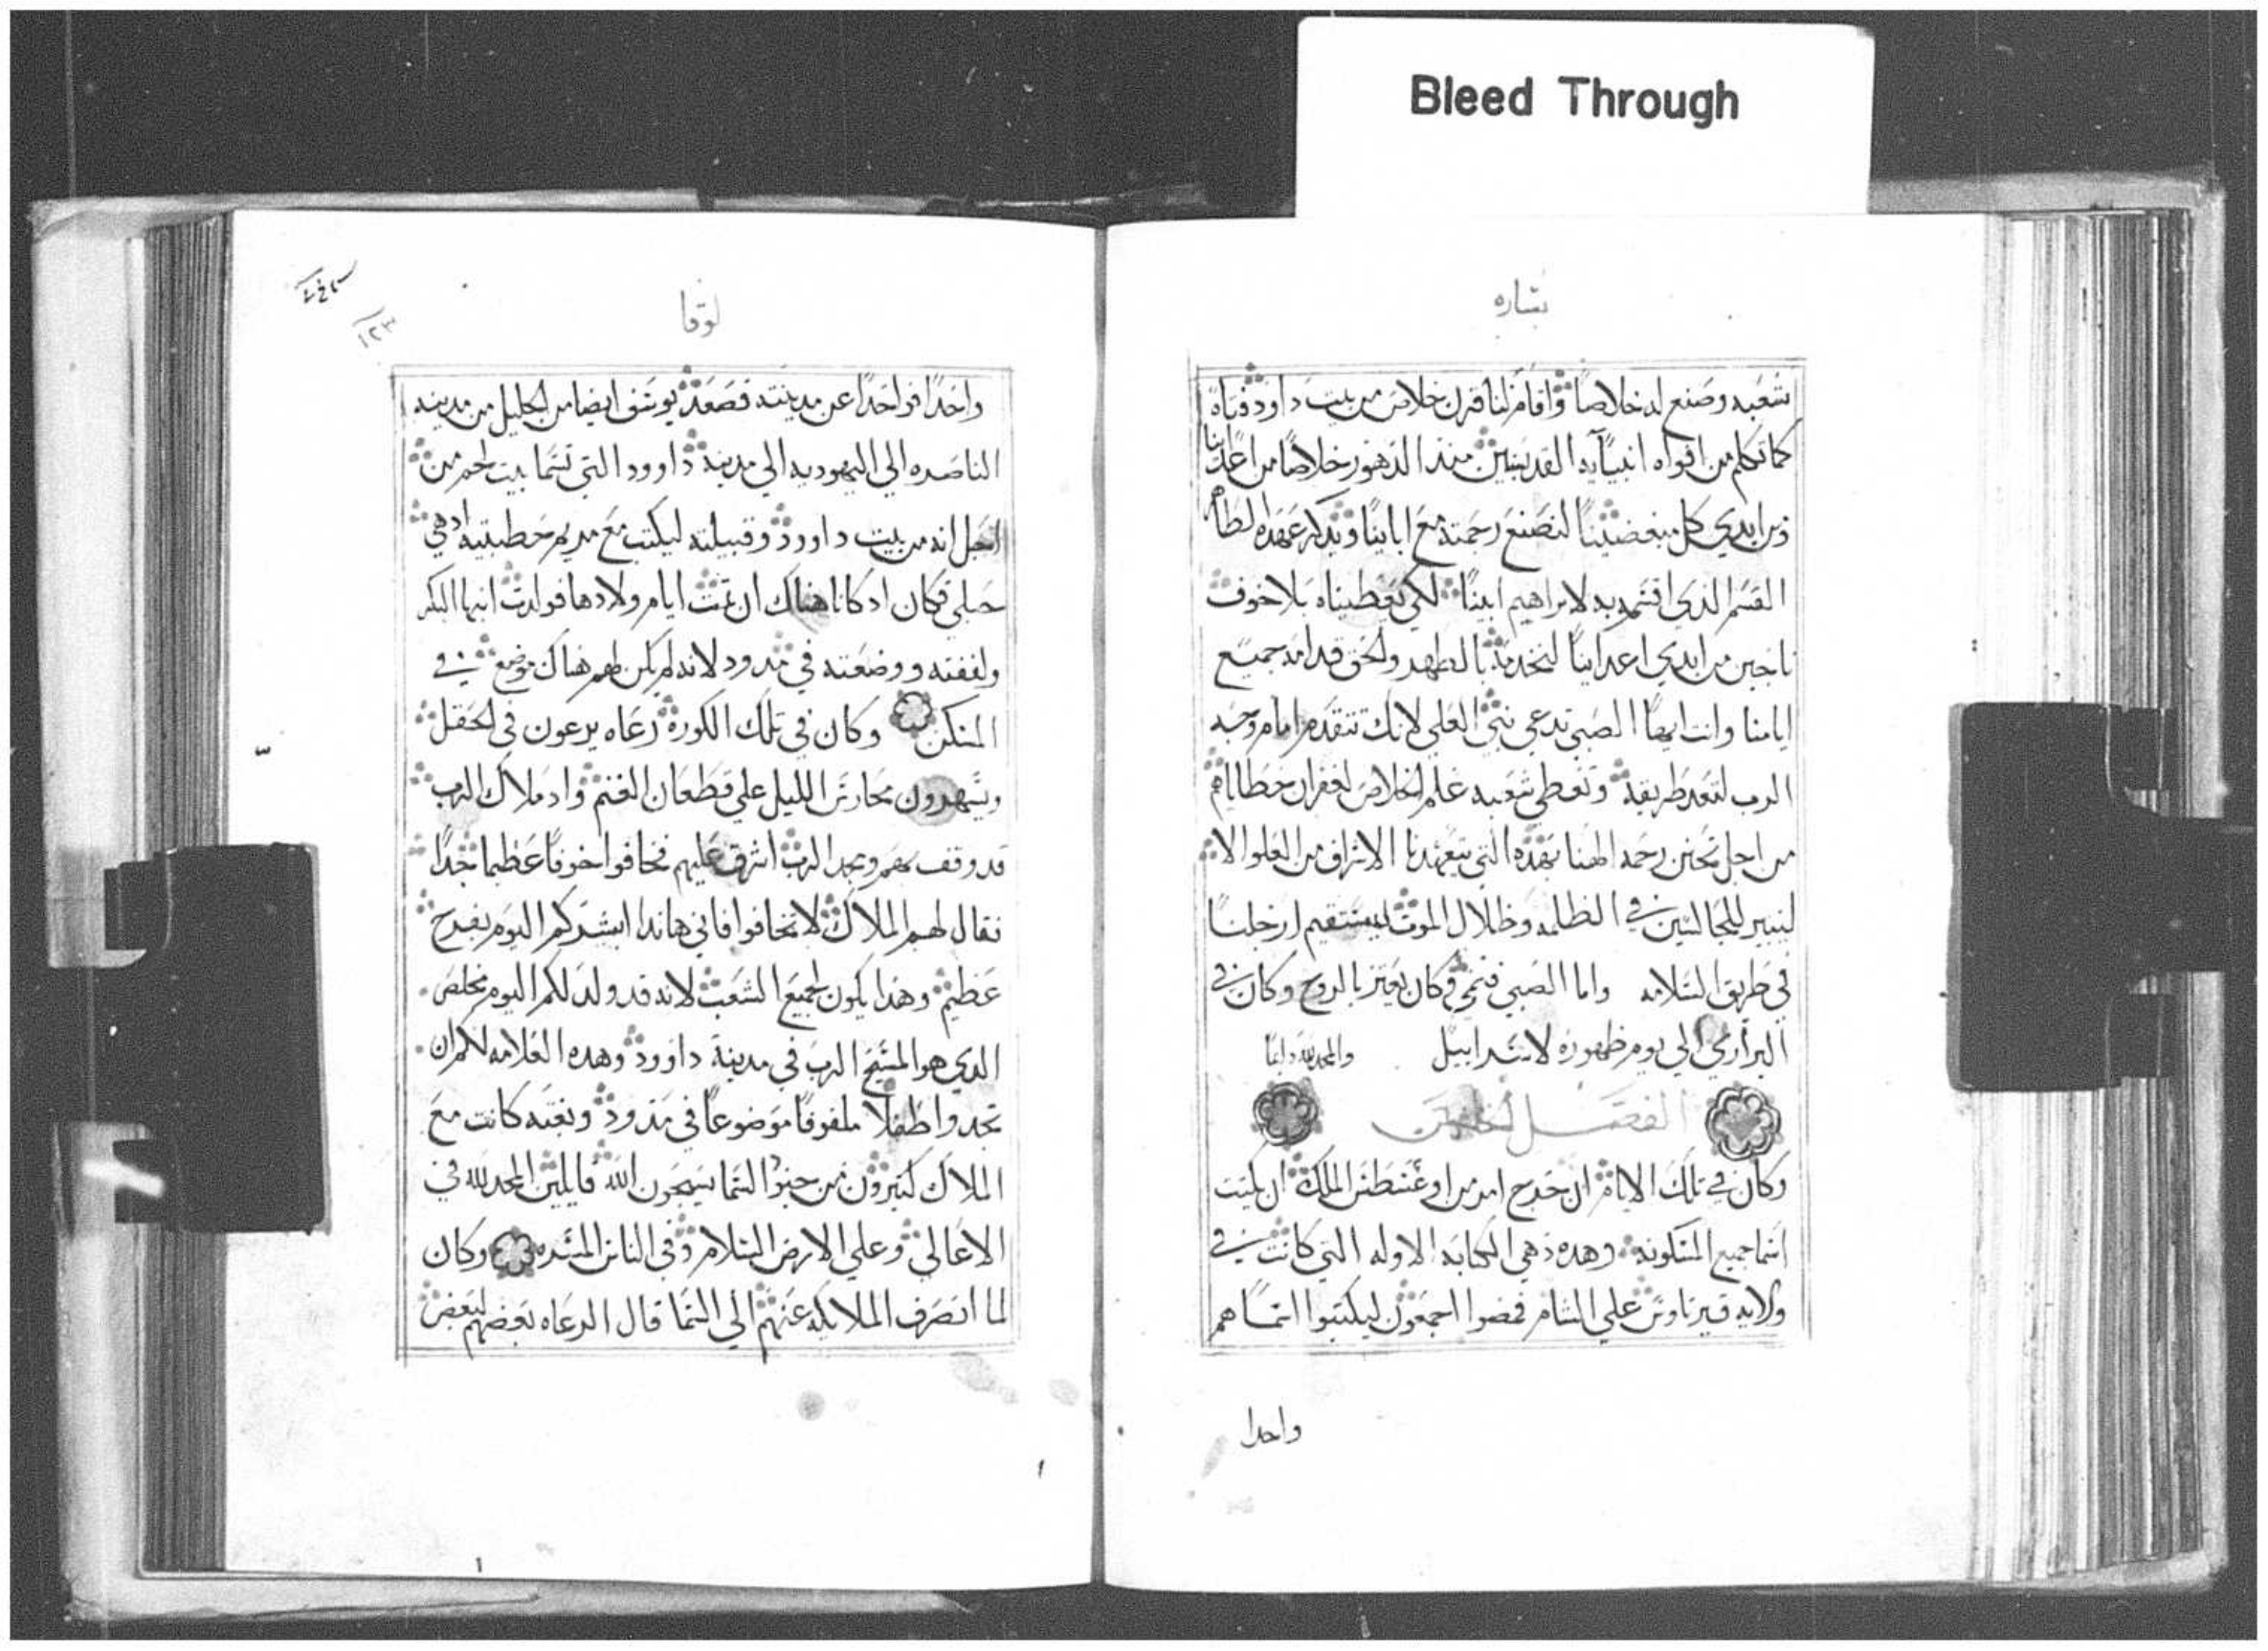 Bleed Through
بشاره
شعبه وصنع له خلاصا واقام لنا قرن خلاص من بيت داود فتاه
كما تكلم من افواه انبيايه القديسين منذ الدهور خلاصا من اعداينا
ومن ايدي كل مبغضينا ليصنع رحمته مع اباينا ويذكر عهده الطاهر
القسم الذي اقسم به لابراهيم ابينا لكي يعطيناه بلا خوف
ناجين من ايدي اعداينا لنخدمه بالطهر والحق قدامه جميع
ايامنا وانت ايها الصبي تدعي نبي العلي لانك تتقدم امام وجه
الرب لتعد طريقه وتعطي شعبه علم الخلاص لغفران خطاياهم
من اجل تحنن رحمة الهنا بهذه التي يتعهدنا الاشراق من العلو
لينير للجالسين في الظلمه وظلال الموت ليستقيم ارجلنا
في طريق السلامه واما الصبي فنمي وكان يعتز بالروح وكان في
البراري الي يوم ظهوره لاسرابيل والمجد لله دايما
الفصل
وكان في تلك الايام ان خرج امر من اوغسطس الملك ان يكتب
اسما جميع المسكونه وهده هي الكتابه الاوله التي كانت في
ولايه قيرناوس علي الشام فمضوا اجمعون ليكتبوا اسماهم
واحدا
لوقا
واحدا فواحدا عن مدينته فصعد يوسف ايضا من الجليل من مدينه
الناصره الي اليهوديه الي مدينة داوود التي تسما بيت لحم من
اجل انه من بيت داوود وقبيلته ليكتب مع مريم خطيبته اد هي
حبلي فكان اد كانا هناك ان تمت ايام ولادها فولدت ابنها البكر
ولففته ووضعته في مدود لانه لم يكن لهم هناك موضع في
المسكن وكان في تلك الكورة رعاه يرعون في الحقل
ويسهرون محارس الليل علي قطعان الغنم واد ملاك الرب
قد وقف بهم ومجد الرب اشرق عليهم فخافوا خوفا عظيما جدا
فقال لهم الملاك لا تخافوا فاني هاندا ابشركم اليوم بفرح
عظيم وهذا يكون لجميع الشعب لانه قد ولد لكم اليوم مخلص
الدي هو المسيح الرب في مدينة داوود وهده العلامه لكم ان
تجدوا طفلا ملفوفا موضوعا في مدود وبغته كانت مع
الملاك كثيرون من جنود السما يسبحون الله قايلين المجد لله في
الاعالي وعلي الارض السلام وفي الناس المسره وكان
لما انصرف الملايكه عنهم الي السما قال الرعاه بعضهم لبعض